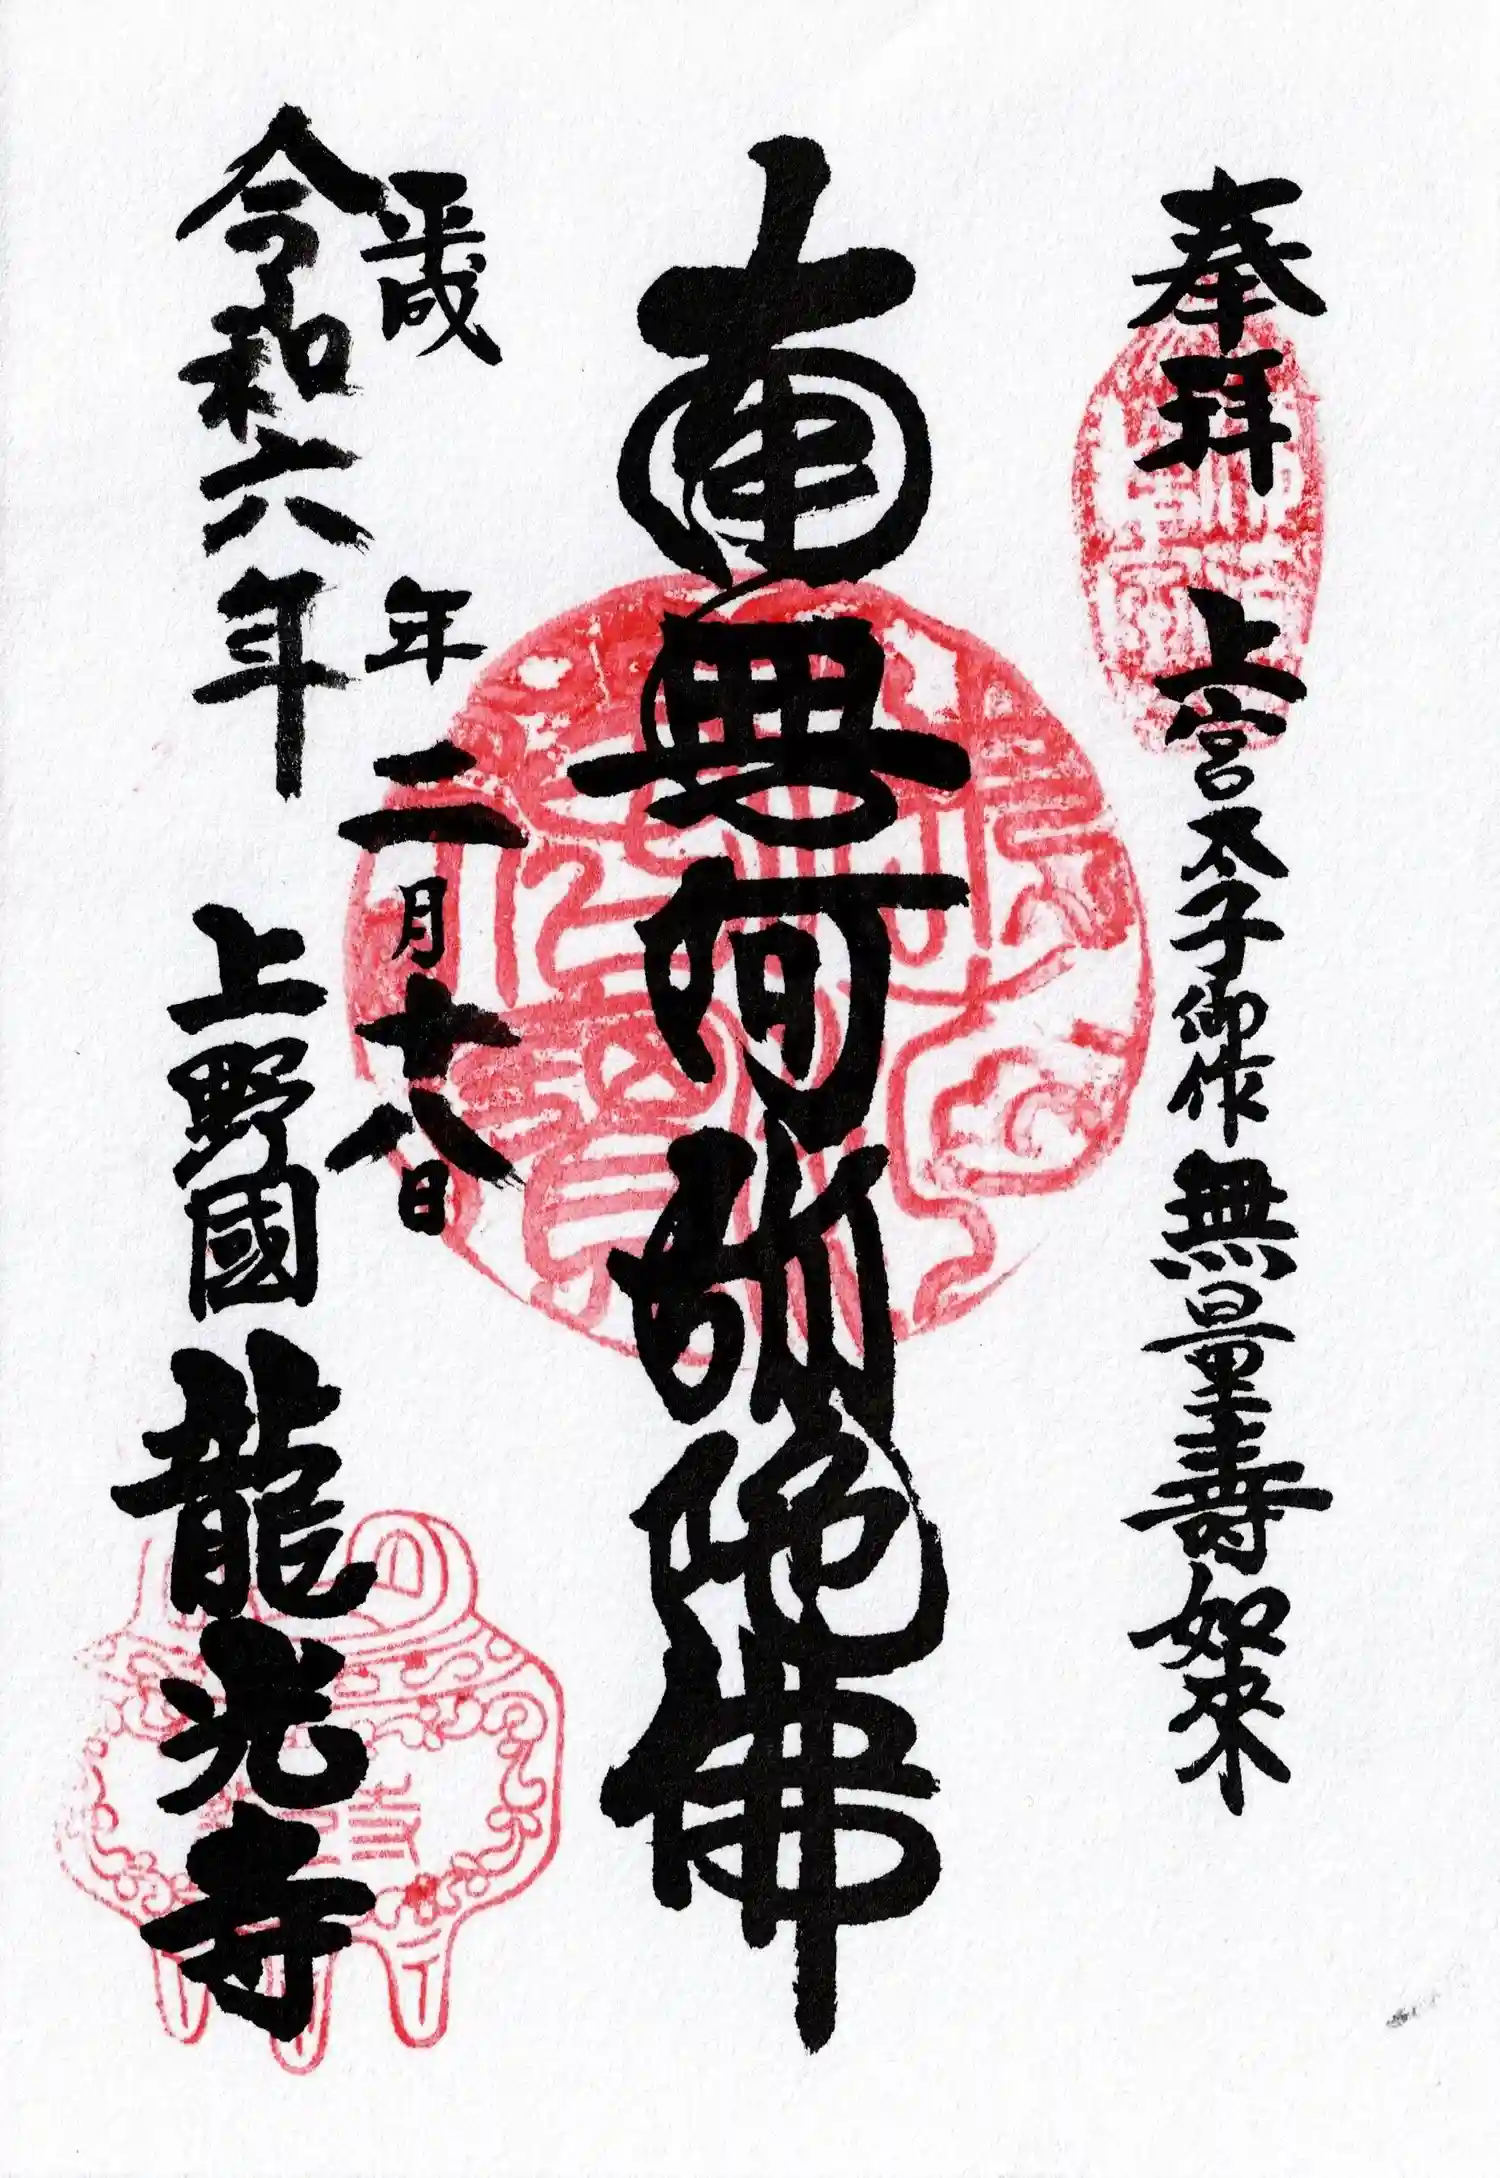 奉拜 上宮太子御作 無量壽如來
南無阿弥陀佛
平成 年 二月十八日
令和六年 上野國 龍光寺